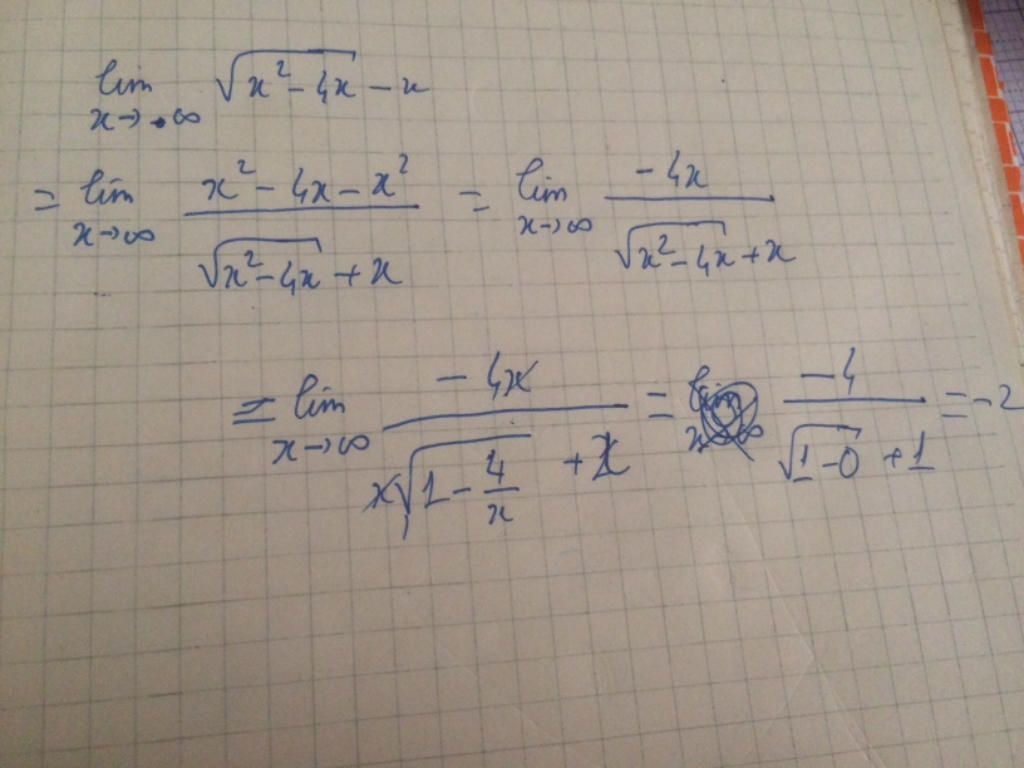 lim x→∞ √(x² - 4x) - x
= lim x→∞ (x² - 4x - x²)/(√(x² - 4x) + x) = lim x→∞ (-4x)/(√(x² - 4x) + x)
= lim x→∞ (-4x)/(x√(1 - 4/x) + x) = (-4)/(√(1 - 0) + 1) = -2